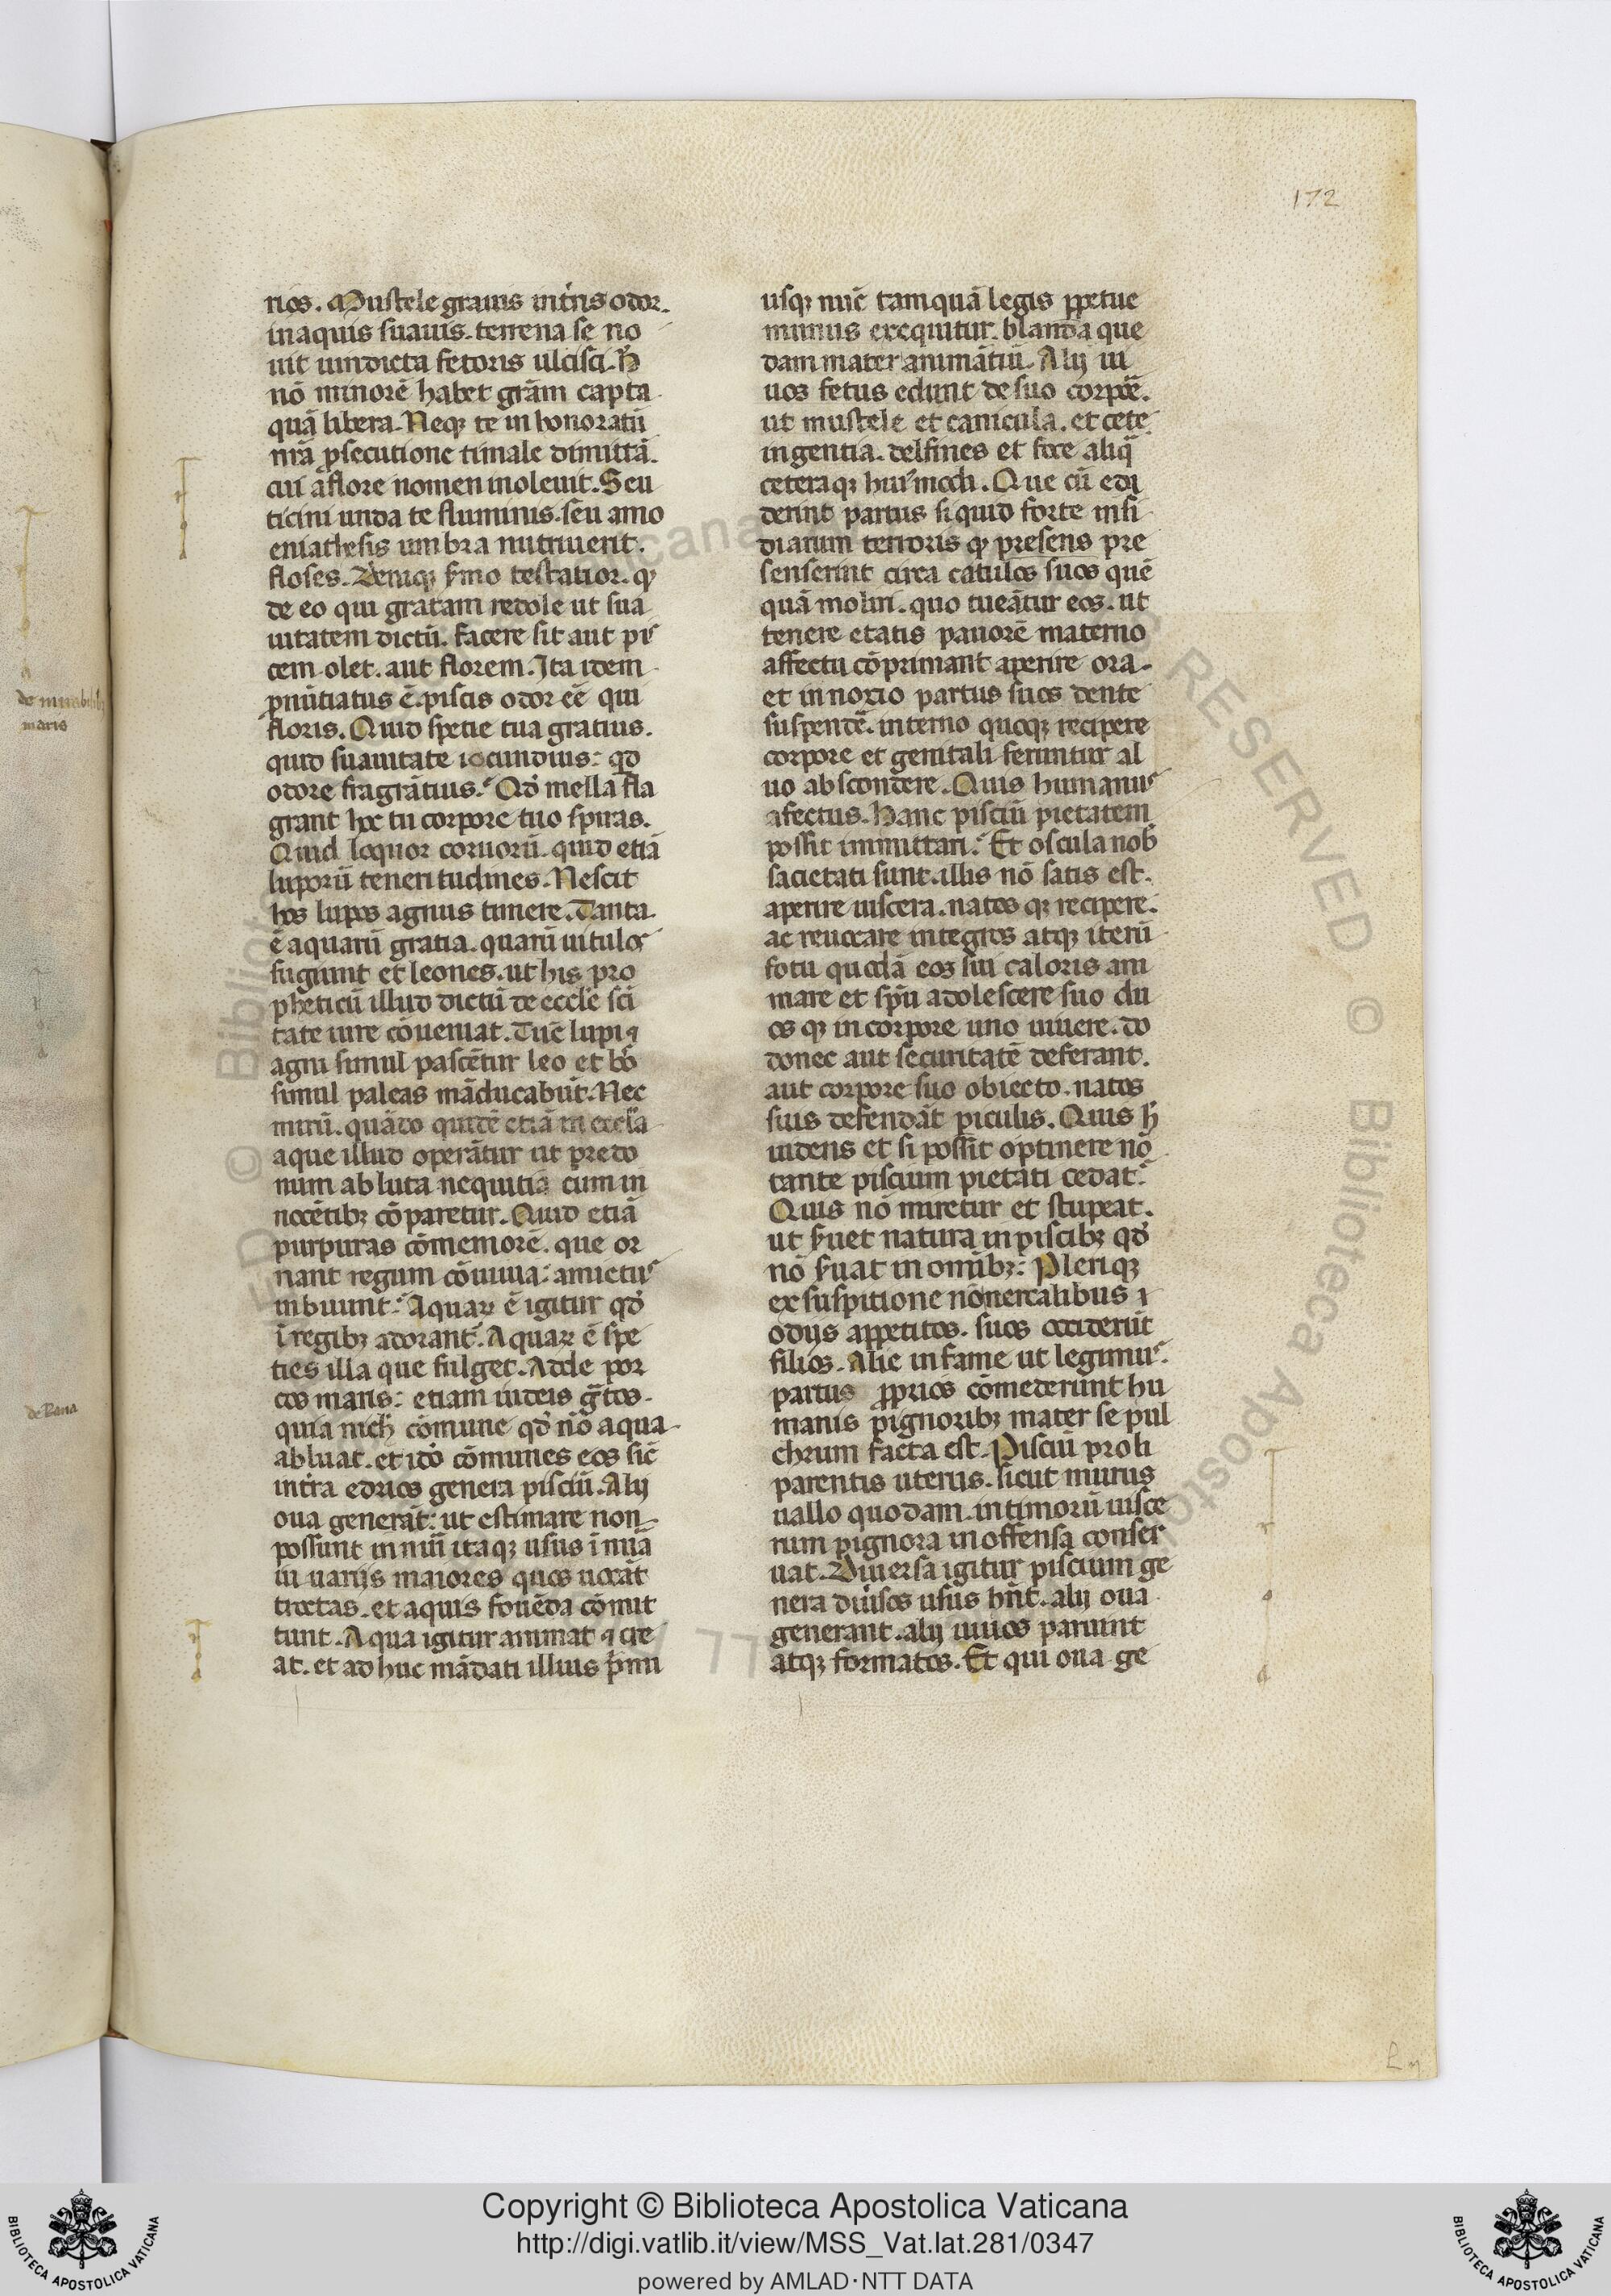 172
rios. Mustele grauis intr̾is odor.
in aquis suauis. terrena se no
uit uindicta fetoris ulcisci. h̾
nō minorē habet grām capta
quā libera. Neqꝫ te in honoratū
nrā ꝓsecutione timale dimittā.
cui a flore nomen inoleuit. Seu
ticini unda te fluminis. seu amo
eniathesis umbra nutriuerit.
floses. Deniqꝫ s̾mo testatior. qꝫ
de eo qui gratam redole ut sua
uitatem dictū. facere sit aut pis
cem olet. aut florem. Ita idem
ꝓnūtiatus ē. piscis odor eē qui
floris. Quid spetie tua gratius.
quid suauitate iocundius: qd
odore fragrātius. Qd̾ mella fla
grant hoc tu corpore tuo spiras.
Quid loquor coruorū. quid etiā
luporū teneritudines. Nescit
hos lupos agnus timere. Tanta
ē aquarū gratia. quarū uitulos
fugiunt et leones. ut his pro
pheticū illud dictū de eccle sci
tate iure cōueniat. Tūc lupi ⁊
agni simul pascētur leo et bos
simul paleas māducabūt. Nec
mirū. quādo quidē etiā in eccla
aque illud operātur ut predo
num abluta nequitia cum in
nocētibꝫ cōparetur. Quid etiā
purpuras cōmemorē. que or
nant regum cōuiuia: amictus
inbuunt. Aquaꝝ ē igitur qd̾
ī regibꝫ adorant. Aquaꝝ ē spe
ties illa que fulget. Adde por
cos maris: etiam iudeis g̃tos.
quia nich̾ cōmune qd̾ nō aqua
abluat. et iđo cōmunes eos sic̄
intra edricos genera pisciū. Alij
oua generāt: ut estimare non
possunt in nrū itaqꝫ usus ī nrā
in uarijs maiores quos uocāt
troctas. et aquis fouēda cōmit
tunt. Aqua igitur animat ⁊ cre
at. et adhuc mādati illius p̾mi
usqꝫ nūc tamquā legis ꝑpetue
munus exequitur. blanda que
dam mater animātiū. Alij ui
uos fetus edunt de suo corpoē.
ut mustele et canicula. et cete
ingentia. delfines et foce aliq̄
ceteraqꝫ hui᷒modi. Que cū edi
derint partus si quid forte insi
diarum terroris qꝫ presens pre
senserint circa catulos suos quē
quā moliri. quo tueātur eos. ut
tenere etatis pauorē materno
affectu cōprimant aperire ora.
et in noxio partus suos dente
suspendē. interno quoqꝫ recipere
corpore et genitali feruntur al
uo abscondere. Quis humanus
afectus. Hanc pisciū pietatem
possit immittari. Et oscula nob̾
sacietati sunt. illis nō satis est.
aperire uiscera. natos qꝫ recipere.
ac reuocare integros atqꝫ iterū
fotu quodā eos sui caloris ani
mare et spū adolescere suo du
os qꝫ in corpore uno uiuere. do
donec aut securitatē deferant.
aut corpore suo obiecto. natos
suis defendāt piculis. Quis h̾
uidens et si possit optinere nō
tante piscium pietati cedat.
Quis nō miretur et stupeat.
ut s̾uet natura in piscibꝫ qd̾
nō s̾uat in omībꝫ: Pleriqꝫ
ex suspitione nōnercalibus ī
odijs appetitos. suos occiderūt
filios. Alie in fame ut legimus.
partus ꝓprios cōmederunt hu
manis pignoribꝫ mater se pul
chrum facta est. Pisciū proli
parentis uterus. sicut murus
uallo quodam. intimorū uisce
rum pignora in offensa conser
uat. Diuersa igitur piscium ge
nera diuisos usus hn̄t. alij oua
generant. alij uiuos pariunt
atqꝫ formatos. Et qui oua ge
maris
de Rana
© Biblioteca Apostolica
RESERVED
Copyright © Biblioteca Apostolica Vaticana
http://digi.vatlib.it/view/MSS_Vat.lat.281/0347
powered by AMLAD·NTT DATA
BIBLIOTECA APOSTOLICA VATICANA
BIBLIOTECA APOSTOLICA VATICANA